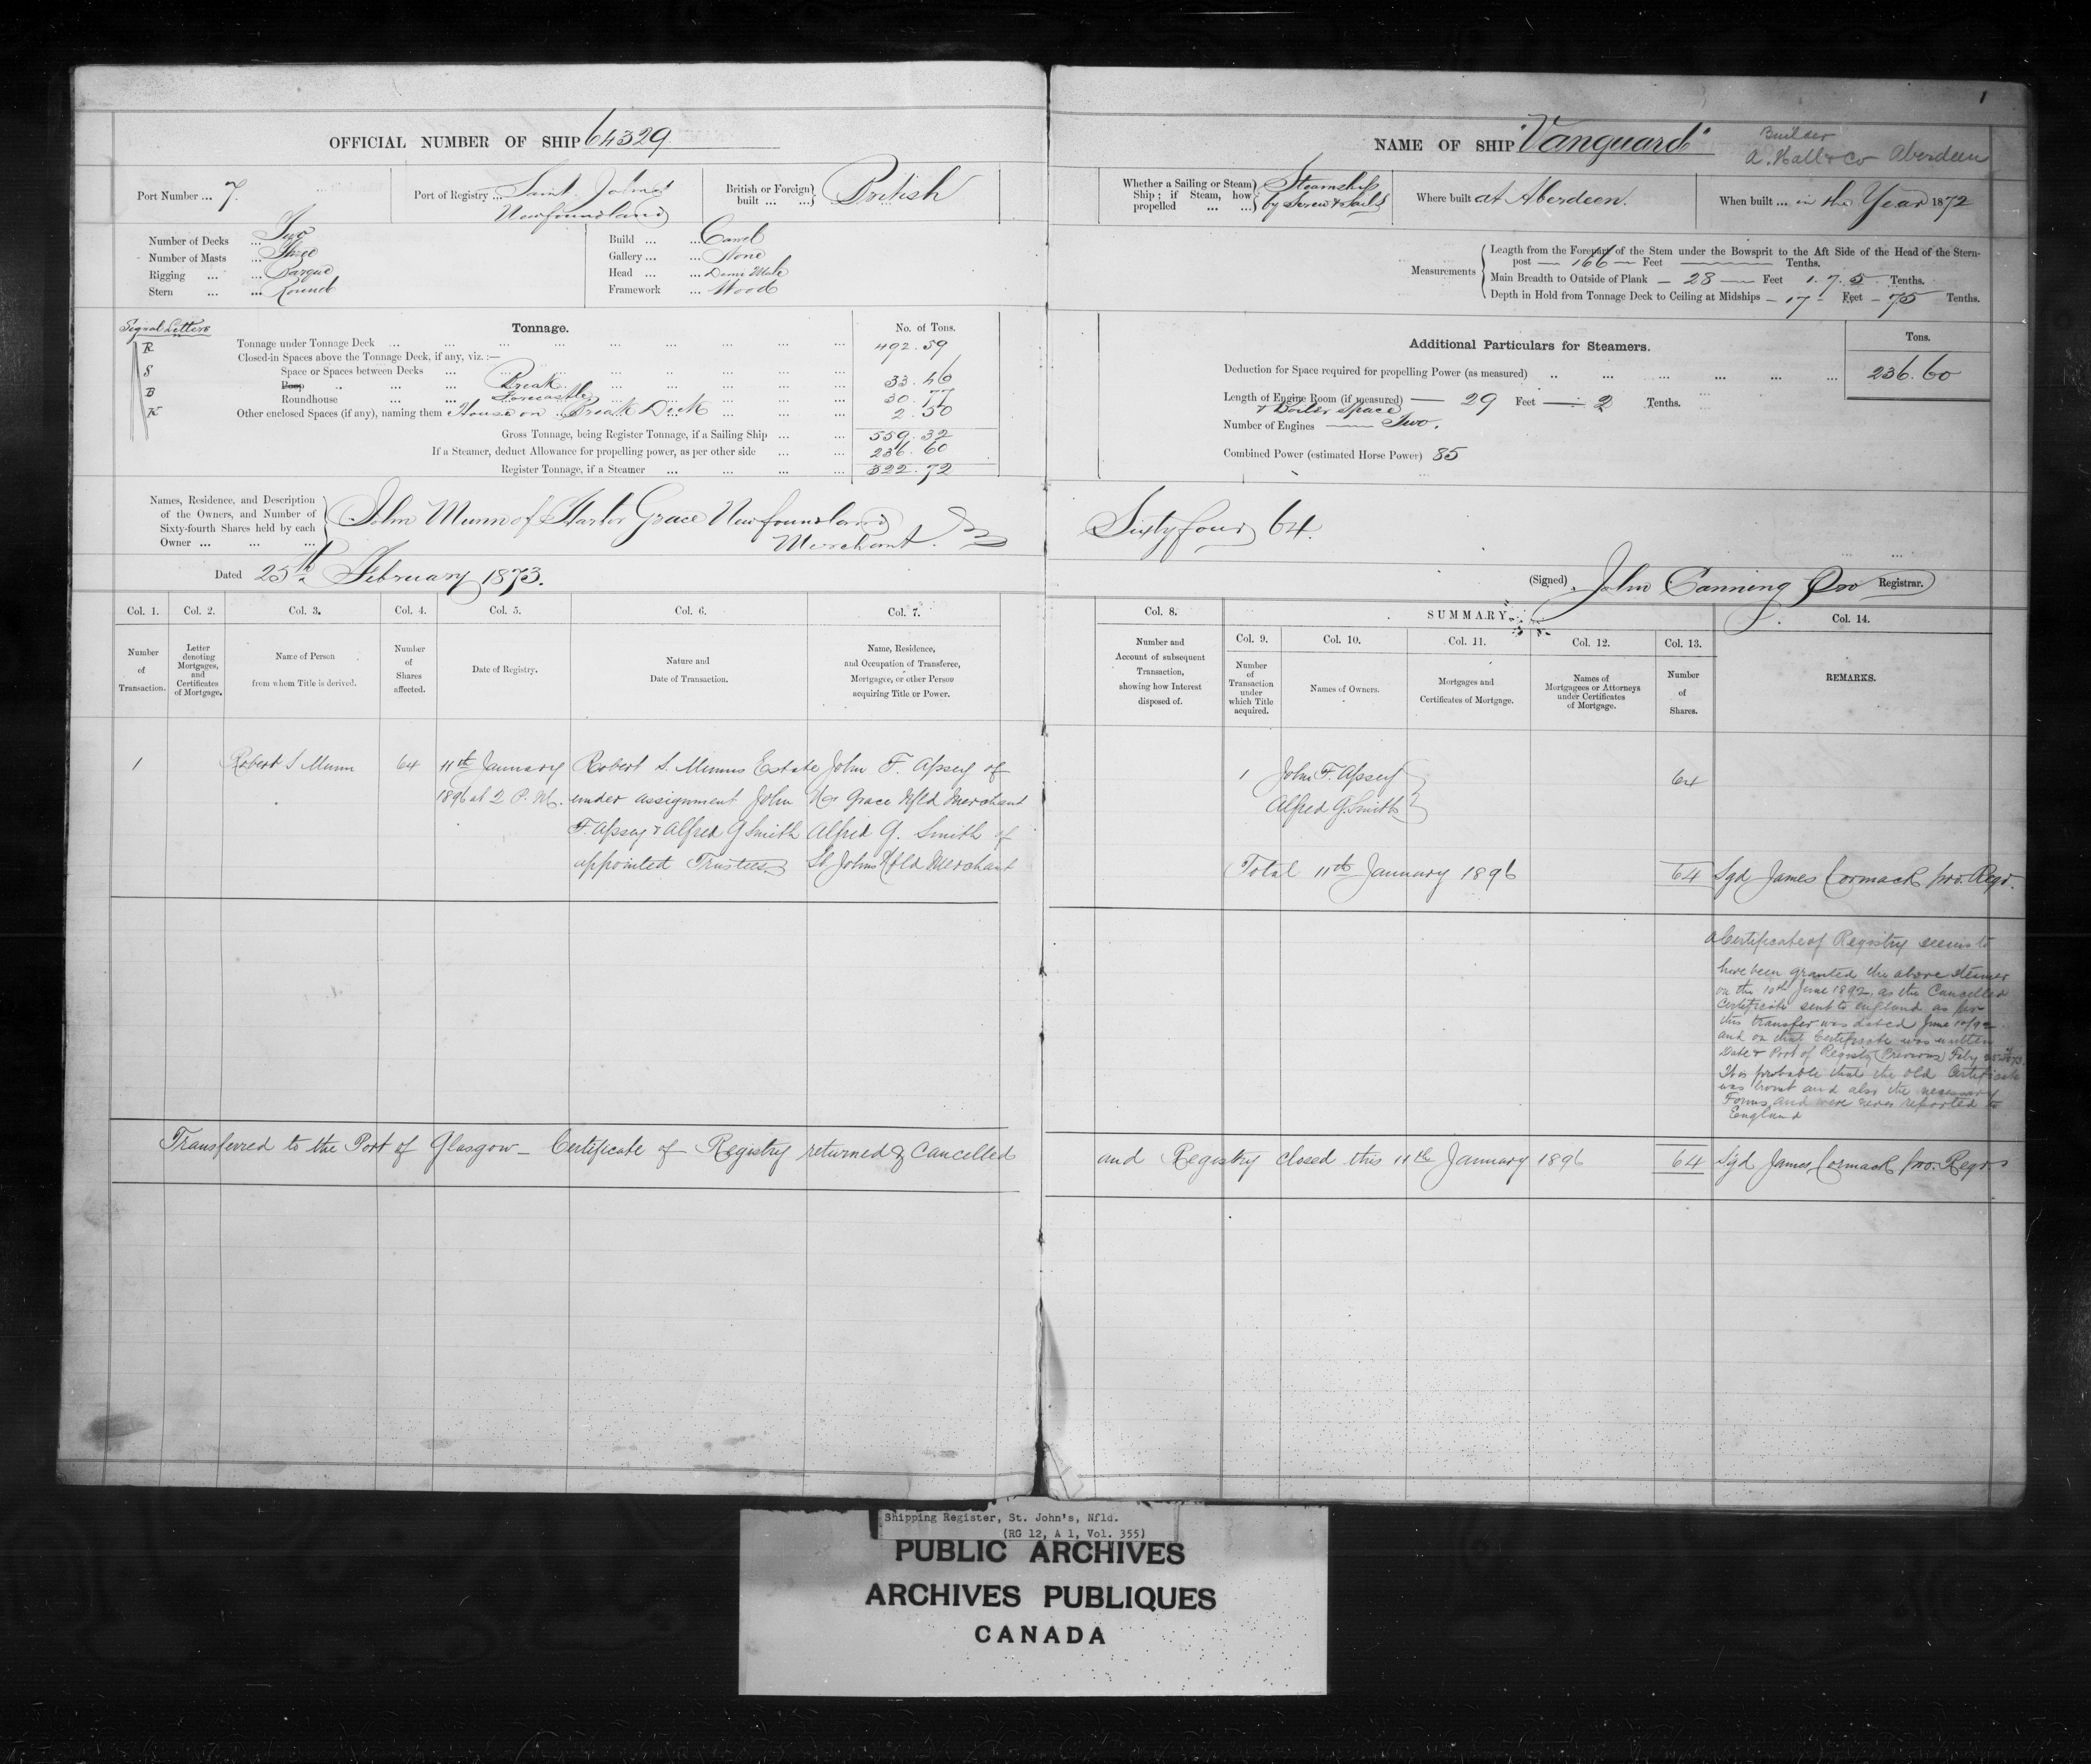 OFFICIAL NUMBER OF SHIP 64329
Port Number ... 7.
Port of Registry ... Saint John's
Newfoundland
British or Foreign built ... British
Number of Decks ... Two
Number of Masts ... Three
Rigging ... Barque
Stern ... Round
Build ... Carvel
Gallery ... None
Head ... Demi Male
Framework ... Wood
Signal Letters
R
S
B
K
Tonnage.
No. of Tons.
Tonnage under Tonnage Deck ... 492.59
Closed-in Spaces above the Tonnage Deck, if any, viz. :—
Space or Spaces between Decks ...
Poop ... Break ... 33.46
Roundhouse ... Forecastle ... 30.77
Other enclosed Spaces (if any), naming them House on Break Deck ... 2.50
Gross Tonnage, being Register Tonnage, if a Sailing Ship ... 559.32
If a Steamer, deduct Allowance for propelling power, as per other side ... 236.60
Register Tonnage, if a Steamer ... 322.72
Names, Residence, and Description of the Owners, and Number of Sixty-fourth Shares held by each Owner ...
John Munn of Harbor Grace Newfoundland
Merchant.
Dated 25th February 1873.
Col. 1. Col. 2. Col. 3. Col. 4. Col. 5. Col. 6. Col. 7.
Number of Transaction.
Letter denoting Mortgages, and Certificates of Mortgage.
Name of Person from whom Title is derived.
Number of Shares affected.
Date of Registry.
Nature and Date of Transaction.
Name, Residence, and Occupation of Transferee, Mortgagee, or other Person acquiring Title or Power.
1 Robert S Munn 64 11th January Robert S. Munns Estate John F. Apsey of
1896 at 2 P.M. under assignment John Hr Grace Nfld Merchant
F. Apsey & Alfred G Smith Alfred G. Smith of
appointed Trustees St Johns Nfld Merchant
Transferred to the Port of Glasgow – Certificate of Registry returned & Cancelled
1
NAME OF SHIP "Vanguard"
Builder
A. Hall & Co Aberdeen
Whether a Sailing or Steam Ship; if Steam, how propelled ... Steamship
by Screw & Sails
Where built at Aberdeen.
When built ... in the Year 1872
Measurements
Length from the Forepart of the Stem under the Bowsprit to the Aft Side of the Head of the Stern-
post — 166 — Feet — Tenths.
Main Breadth to Outside of Plank — 28 — Feet 1.7.5 Tenths.
Depth in Hold from Tonnage Deck to Ceiling at Midships — 17 — Feet — 75 Tenths.
Additional Particulars for Steamers.
Tons.
Deduction for Space required for propelling Power (as measured) ... 236.60
Length of Engine Room (if measured) — 29 Feet — 2 Tenths.
& Boiler Space
Number of Engines — Two.
Combined Power (estimated Horse Power) 85
Sixty four 64.
(Signed) John Canning Pro Registrar.
Col. 8.
SUMMARY.
Col. 14.
Col. 9. Col. 10. Col. 11. Col. 12. Col. 13.
Number and Account of subsequent Transaction, showing how Interest disposed of.
Number of Transaction under which Title acquired.
Names of Owners.
Mortgages and Certificates of Mortgage.
Names of Mortgagees or Attorneys under Certificates of Mortgage.
Number of Shares.
REMARKS.
1 John F. Apsey 64
Alfred G. Smith
Total 11th January 1896 64 Sgd James Cormack pro. Regr.
A Certificate of Registry seems to
have been granted the above steamer
on the 10th June 1892, as the Cancelled
Certificate sent to England as per
this transfer was dated June 10/92
and on that Certificate was written
Date & Port of Registry (Previous) Feby 25th 73.
It is probable that the old Certificate
was burnt and also the necessary
Forms, and were never reported to
England
and Registry closed this 11th January 1896 64 Sgd James Cormack pro. Regr
Shipping Register, St. John's, Nfld.
(RG 12, A 1, Vol. 355)
PUBLIC ARCHIVES
ARCHIVES PUBLIQUES
CANADA